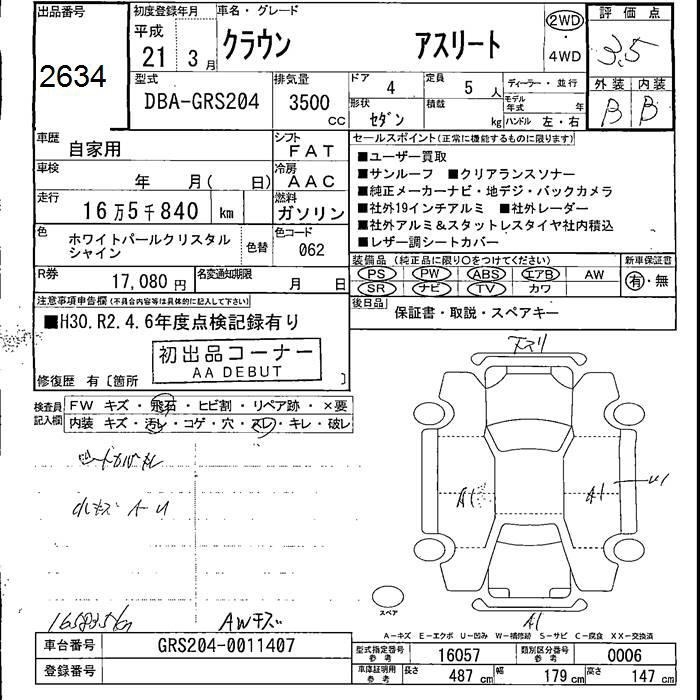 出品番号
2634
初度登録年月
平成
21 3 月
車名・グレード
クラウン アスリート
2WD
・
4WD
評価点
3.5
外装 内装
B B
型式
DBA-GRS204
排気量
3500
CC
ドア
4
形状
セダン
定員
5 人
積載
kg
ディーラー・並行
モデル
年式 年
ハンドル 左・右
車歴
自家用
シフト
FAT
車検
年 月( 日)
冷房
AAC
走行
16万5千840 km
燃料
ガソリン
色
ホワイトパールクリスタル
シャイン
色替
色コード
062
R券
17,080 円
名変通知期限
月 日
セールスポイント(正常に機能するものに限ります)
■ユーザー買取
■サンルーフ ■クリアランスソナー
■純正メーカーナビ・地デジ・バックカメラ
■社外19インチアルミ ■社外レーダー
■社外アルミ&スタットレスタイヤ社内積込
■レザー調シートカバー
装備品(純正品に限り○をつけてください)
PS PW ABS エアB AW
SR ナビ TV カワ
新車保証書
有・無
後日品
保証書・取説・スペアキー
注意事項申告欄(不具合内容等は具体的に記入して下さい)
■H30.R2.4.6年度点検記録有り
初出品コーナー
AA DEBUT
修復歴 有〔箇所 〕
検査員
記入欄
FW キズ・飛石・ヒビ割・リペア跡・×要
内装 キズ・汚レ・コゲ・穴・スレ・キレ・破レ
A1
A1
U1
A1
スペア
AWキズ
A−キズ E−エクボ U−凹み W−補修跡 S−サビ C−腐食 XX−交換済
車台番号
GRS204-0011407
登録番号
型式指定番号
参考
16057
類別区分番号
参考
0006
車庫証明用
参考
長さ 487 cm 幅 179 cm 高さ 147 cm